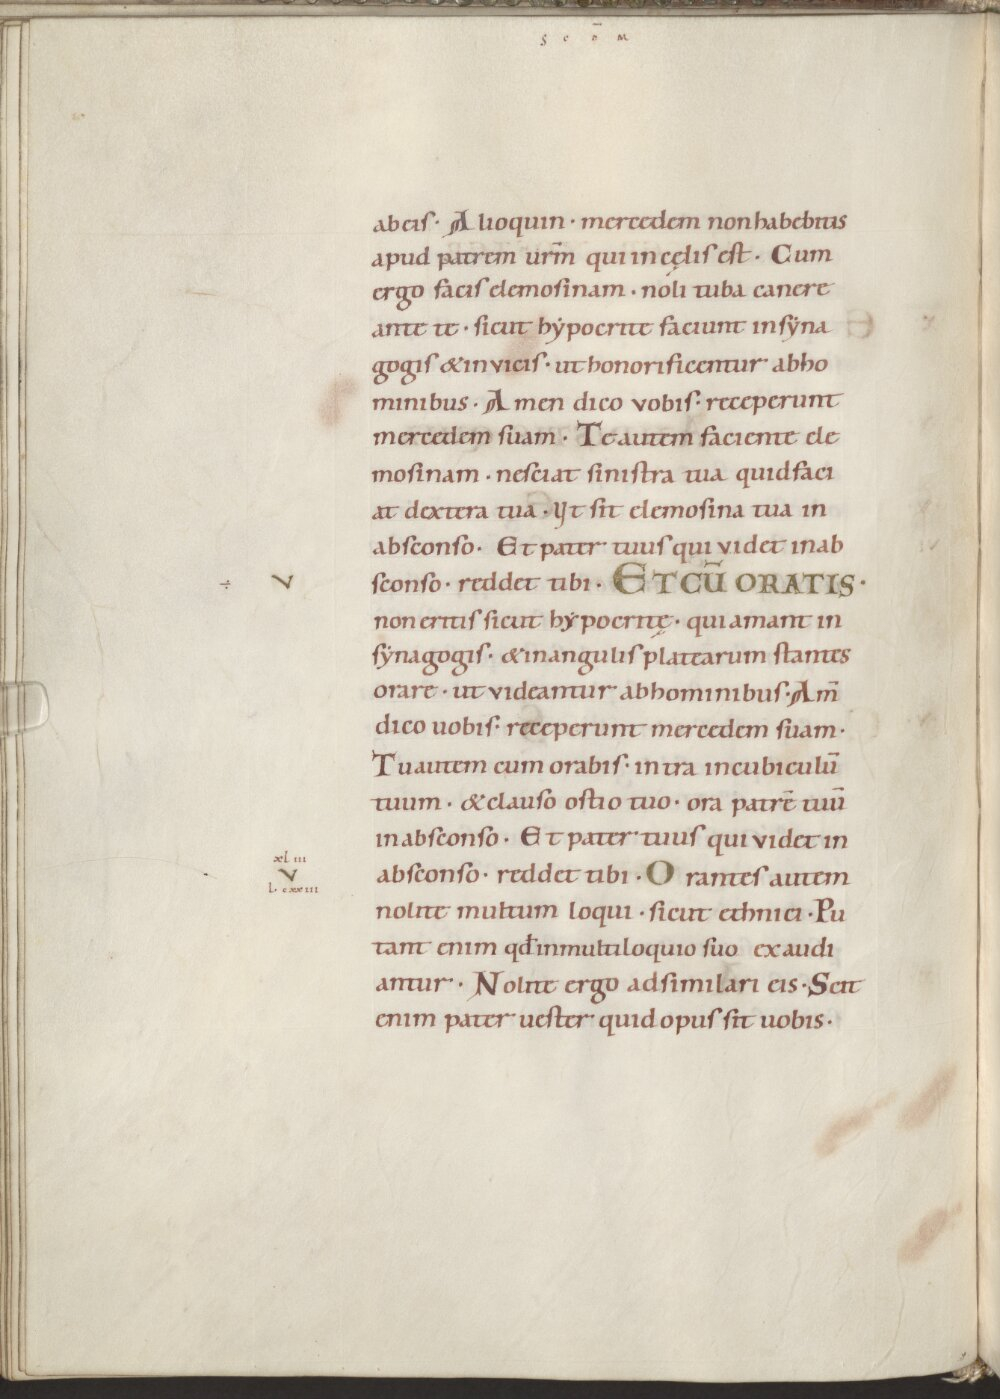 s c̄ ō m
ab eis · Alioquin · mercedem non habebitis
apud patrem ur̄m qui in cęlis est · Cum
ergo facis elemosinam · noli tuba canere
ante te · sicut hẏpocrite faciunt in sẏna
gogis & in vicis · ut honorificentur ab ho
minibus · Amen dico vobis · receperunt
mercedem suam · Te autem faciente ele
mosinam · nesciat sinistra tua quid faci
at dextera tua · Ut sit elemosina tua in
absconso · Et pater tuus qui videt in ab
÷ V sconso · reddet tibi · ET CŪ ORATIS ·
non eritis sicut hẏpocritę · qui amant in
sẏnagogis · & in angulis platearum stantes
orare · ut videantur ab hominibus · Am̄
dico uobis · receperunt mercedem suam ·
Tu autem cum orabis · intra in cubiculū
tuum · & clauso ostio tuo · ora patrē tuū
in absconso · Et pater tuus qui videt in
xl iii
V
l. cxx iii
absconso · reddet tibi · Orantes autem
nolite multum loqui · sicut ethnici · Pu
tant enim qđ in multiloquio suo exaudi
antur · Nolite ergo adsimilari eis · Scit
enim pater uester quid opus sit uobis ·